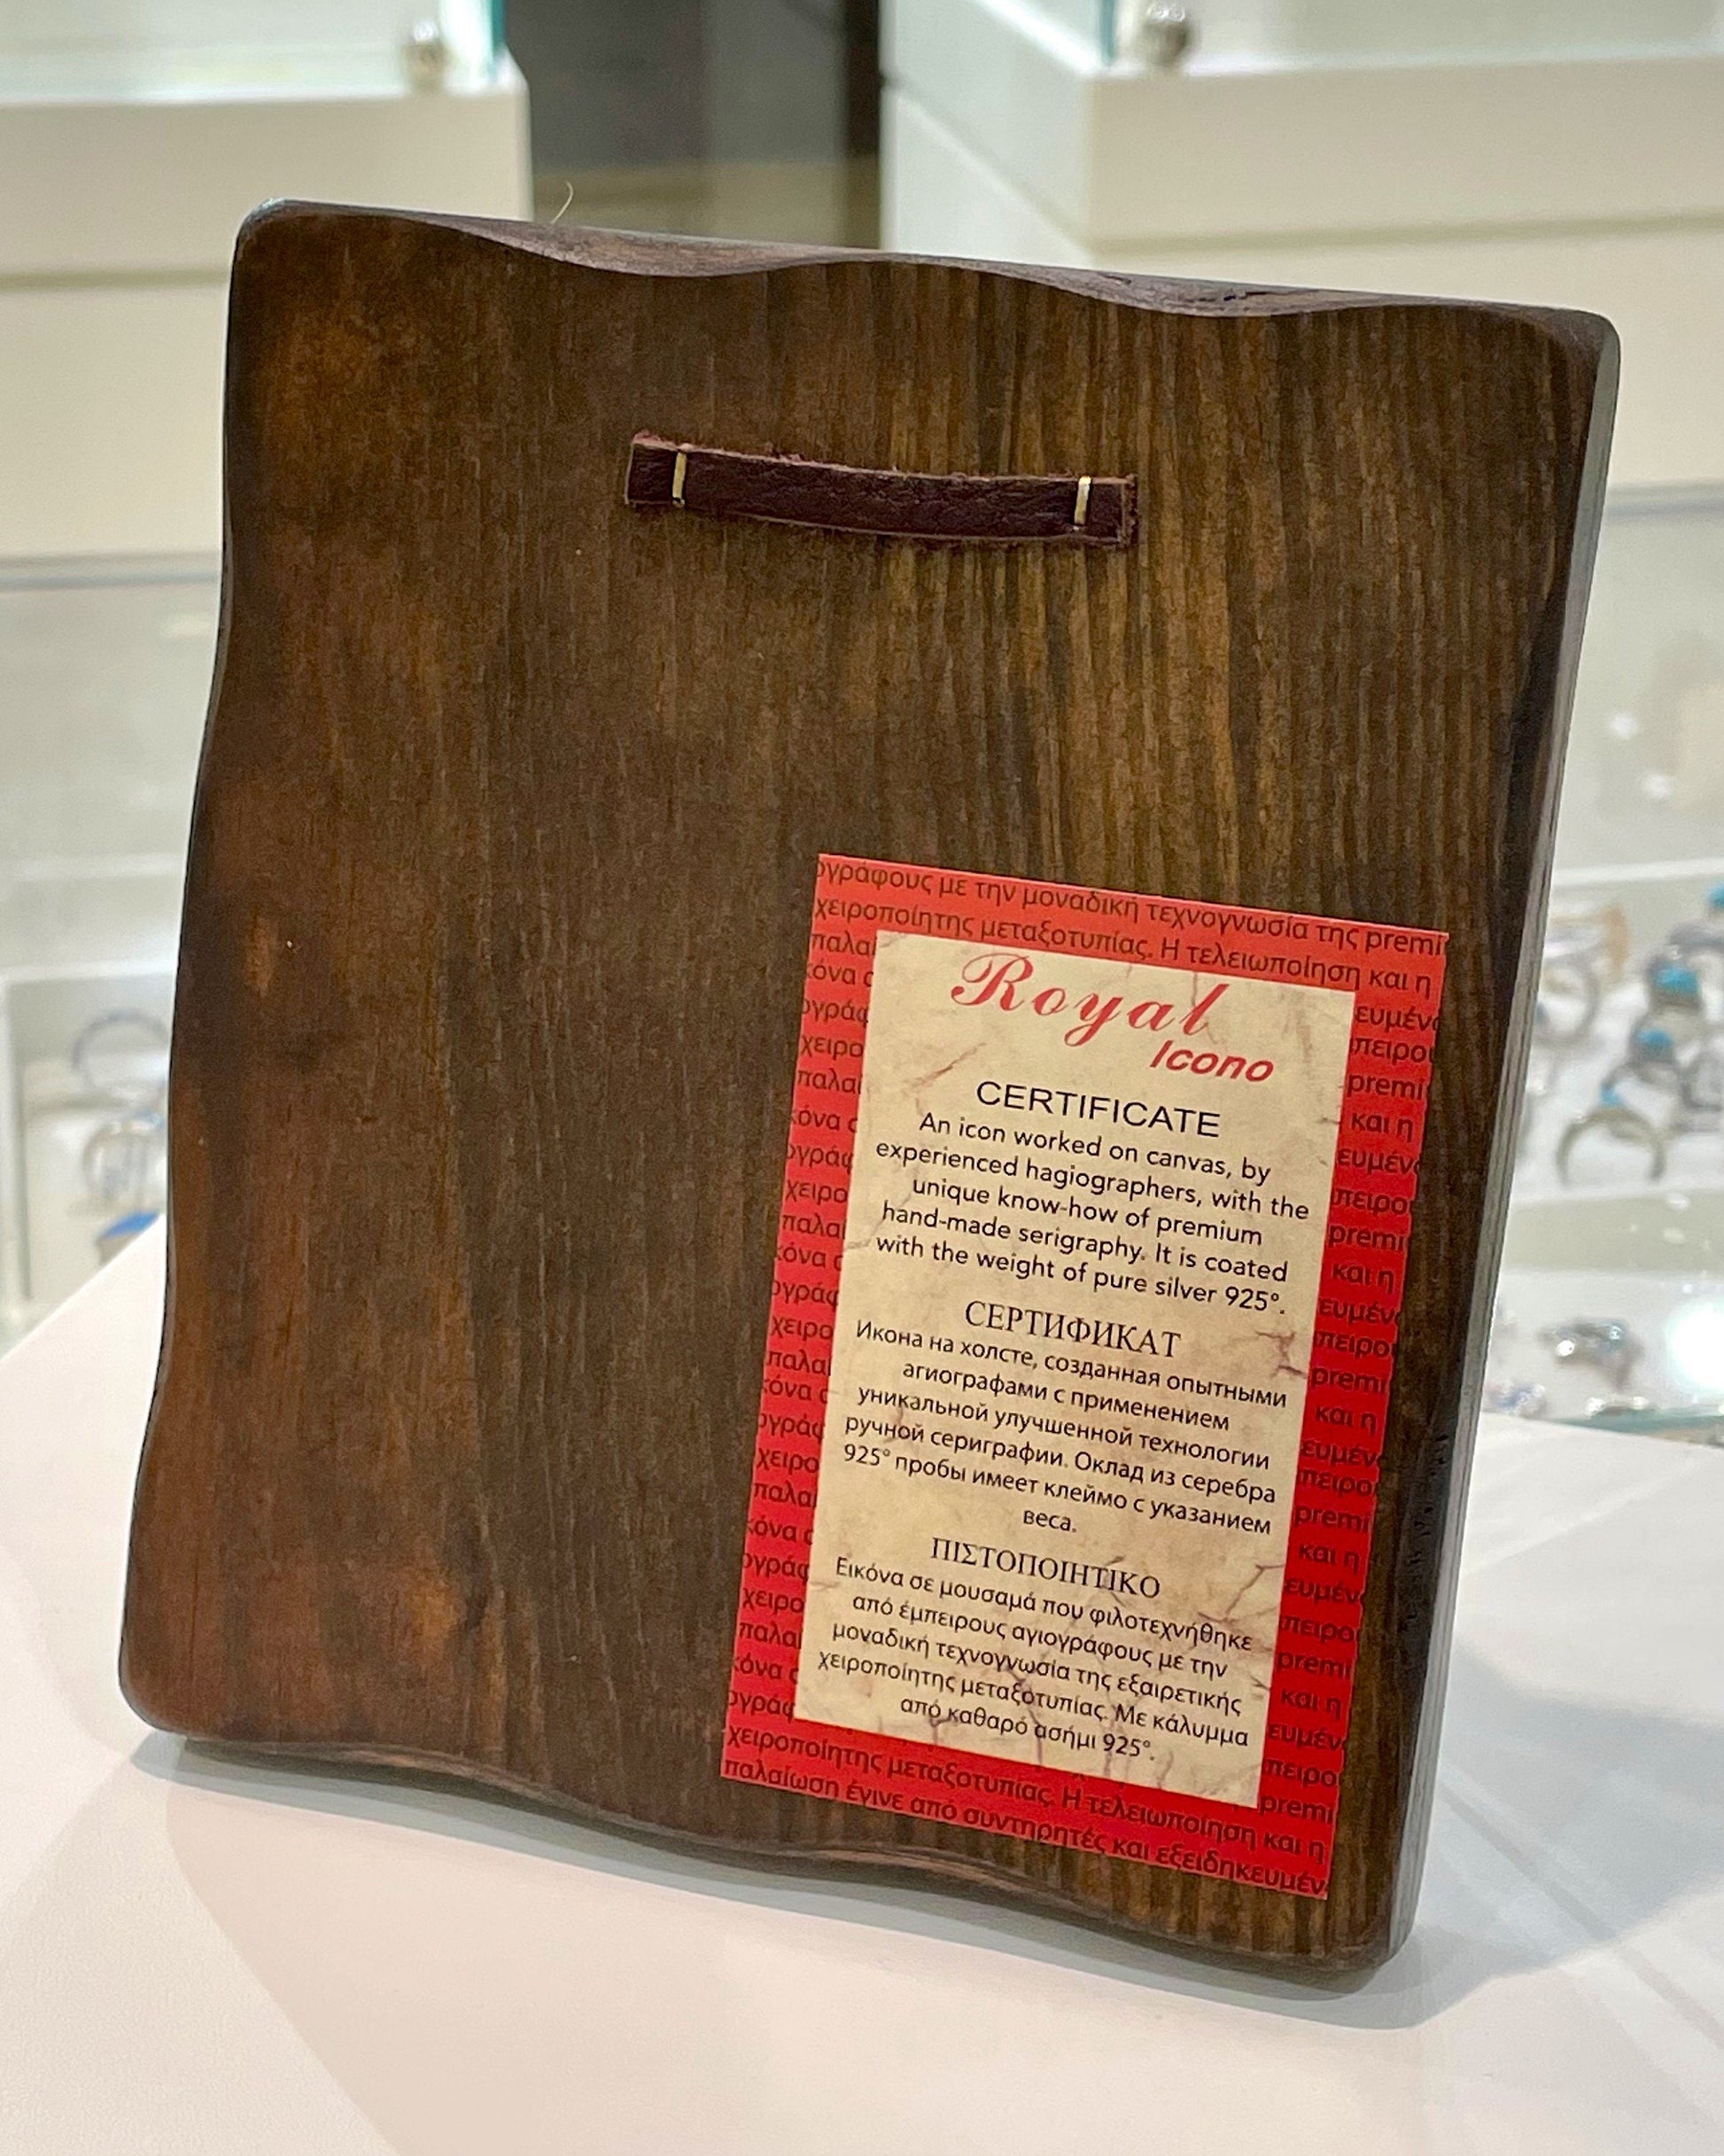 ογράφους με την μοναδική τεχνογνωσία της premi
χειροποίητης μεταξοτυπίας. Η τελειωποίηση και η
Royal
Icono
CERTIFICATE
An icon worked on canvas, by
experienced hagiographers, with the
unique know-how of premium
hand-made serigraphy. It is coated
with the weight of pure silver 925°.
СЕРТИФИКАТ
Икона на холсте, созданная опытными
агиографами с применением
уникальной улучшенной технологии
ручной сериграфии. Оклад из серебра
925° пробы имеет клеймо с указанием
веса.
ΠΙΣΤΟΠΟΙΗΤΙΚΟ
Εικόνα σε μουσαμά που φιλοτεχνήθηκε
από έμπειρους αγιογράφους με την
μοναδική τεχνογνωσία της εξαιρετικής
χειροποίητης μεταξοτυπίας. Με κάλυμμα
από καθαρό ασήμι 925°.
χειροποίητης μεταξοτυπίας. Η τελειωποίηση και η
παλαίωση έγινε από συντηρητές και εξειδηκευμέν